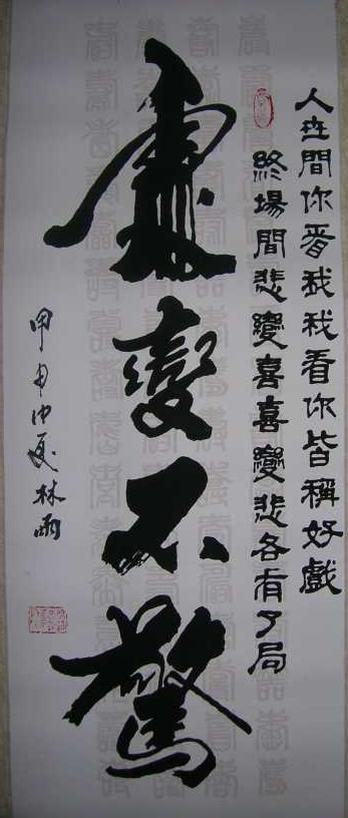 人世間你看我我看你皆稱好戲
終場間悲變喜喜變悲各有了局
處變不驚
甲申仲夏林雨